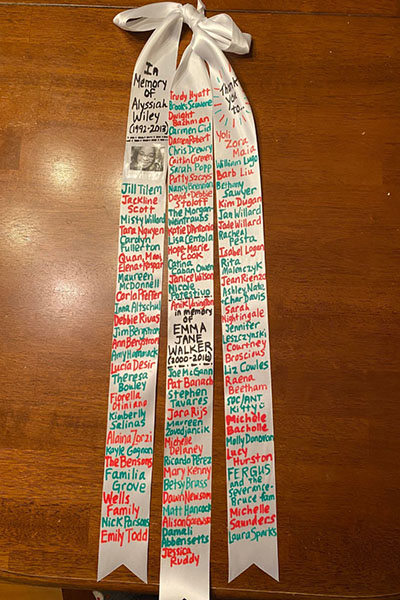 In
Memory
of
Alyssiah
Wiley
(1992-2013)
Jill Tilem
Jackline
Scott
Misty Willard
Tara Nguyen
Carolyn
Fullerton
Quan, Mary
Maureen
McDonnell
Carla Pfeffer
Inna Altschul
Debbie Rivas
Jim Bergstrom
Ann Bergstrom
Amy Hammack
Lucía Desir
Theresa
Bouley
Fiorella
Otiniano
Kimberly
Salinas
Alaina Zorzi
Kayle Gagnon
The Bensons
Familia
Grove
Wells
Family
Nick Parsons
Emily Todd
Trudy Hyatt
Brooks
Dwight
Bachman
Carmen Cid
Darren Robert
Chris Drewry
Caitlin Carmen
Sarah Popp
Patty Szczys
Nancy Brennan
David + Debbie
Stoloff
The Morgan-
Weintraubs
Katie D'Antonio
Lisa Centola
Hope Marie
Cook
Catina
Caban Owen
Janice Wilson
Nicole
Parestivo
in memory
of
EMMA
JANE
WALKER
(2000-2016)
Joe McGann
Pat Banach
Stephen
Tavares
Jara Rijs
Maureen
Zavodjancik
Michelle
Delaney
Ricardo Pérez
Mary Kenny
Betsy Brass
Dawn Newsom
Matt Hancock
Alison
Damali
Abbensetts
Jessica
Ruddy
Thank
you
to...
Yoli
Zora
Maia
William Lugo
Barb Liu
Bethany
Sawyer
Kim Dugan
Jan Willard
Jade Willard
Racheal
Pesta
Isabel Logan
Rita
Malenczyk
Jean Rienzo
Ashley Nate
+ Char Davis
Sarah
Nightingale
Jennifer
Leszczynski
Courtney
Broscius
Liz Cowles
Raena
Beetham
SOC/ANT
Kitty
Michèle
Bacholle
Molly Donovan
Lucy
Hurston
FERGUS
and the
Severance-
Bruce fam
Michelle
Saunders
Laura Sparks